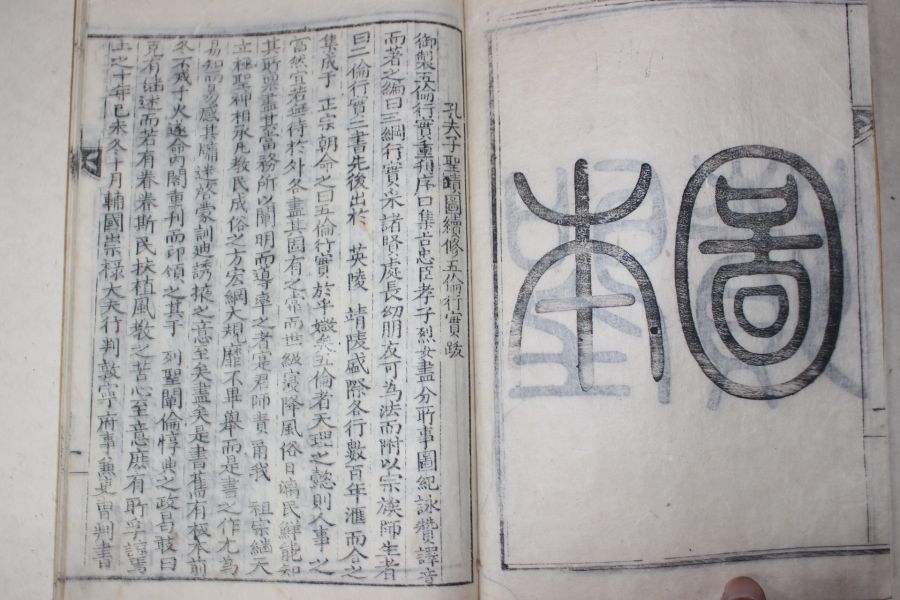 圖本
孔夫子聖蹟圖續修五倫行實跋
御製五倫行實重刊序曰集古忠臣孝子烈女盡分所事圖紀詠贊譯音
而著之編曰三綱行實采諸賢處長幼朋友可為法而附以宗族師生者
曰二倫行實二書先後出於 英陵 靖陵盛際各行數百年滙而合之
集成于 正宗朝命之曰五倫行實於乎媺矣五倫者天理之懿則人事之
當然宜若無待於外各盡其固有之常而世級浸降風俗日漓民鮮能知
其所稟盡其當務所以闡明而導率之者寔君師責爾我 祖宗繼天
立極聖神相承凡教民成俗之方宏綱大規靡不畢舉而是書之作尤為
易知易感其牖迷發蒙訓迪誘掖之意至矣盡矣是書舊有板本前
冬不戒于火遂命內閣重刊而印頒之其于 列聖闡倫惇典之政曷敢曰
克有繼述而若有眷眷斯民扶植風教之苦心至意庶有所孚諒焉
上之十年己未冬十月輔國崇祿大夫行判敦寧府事兼吏曹判書